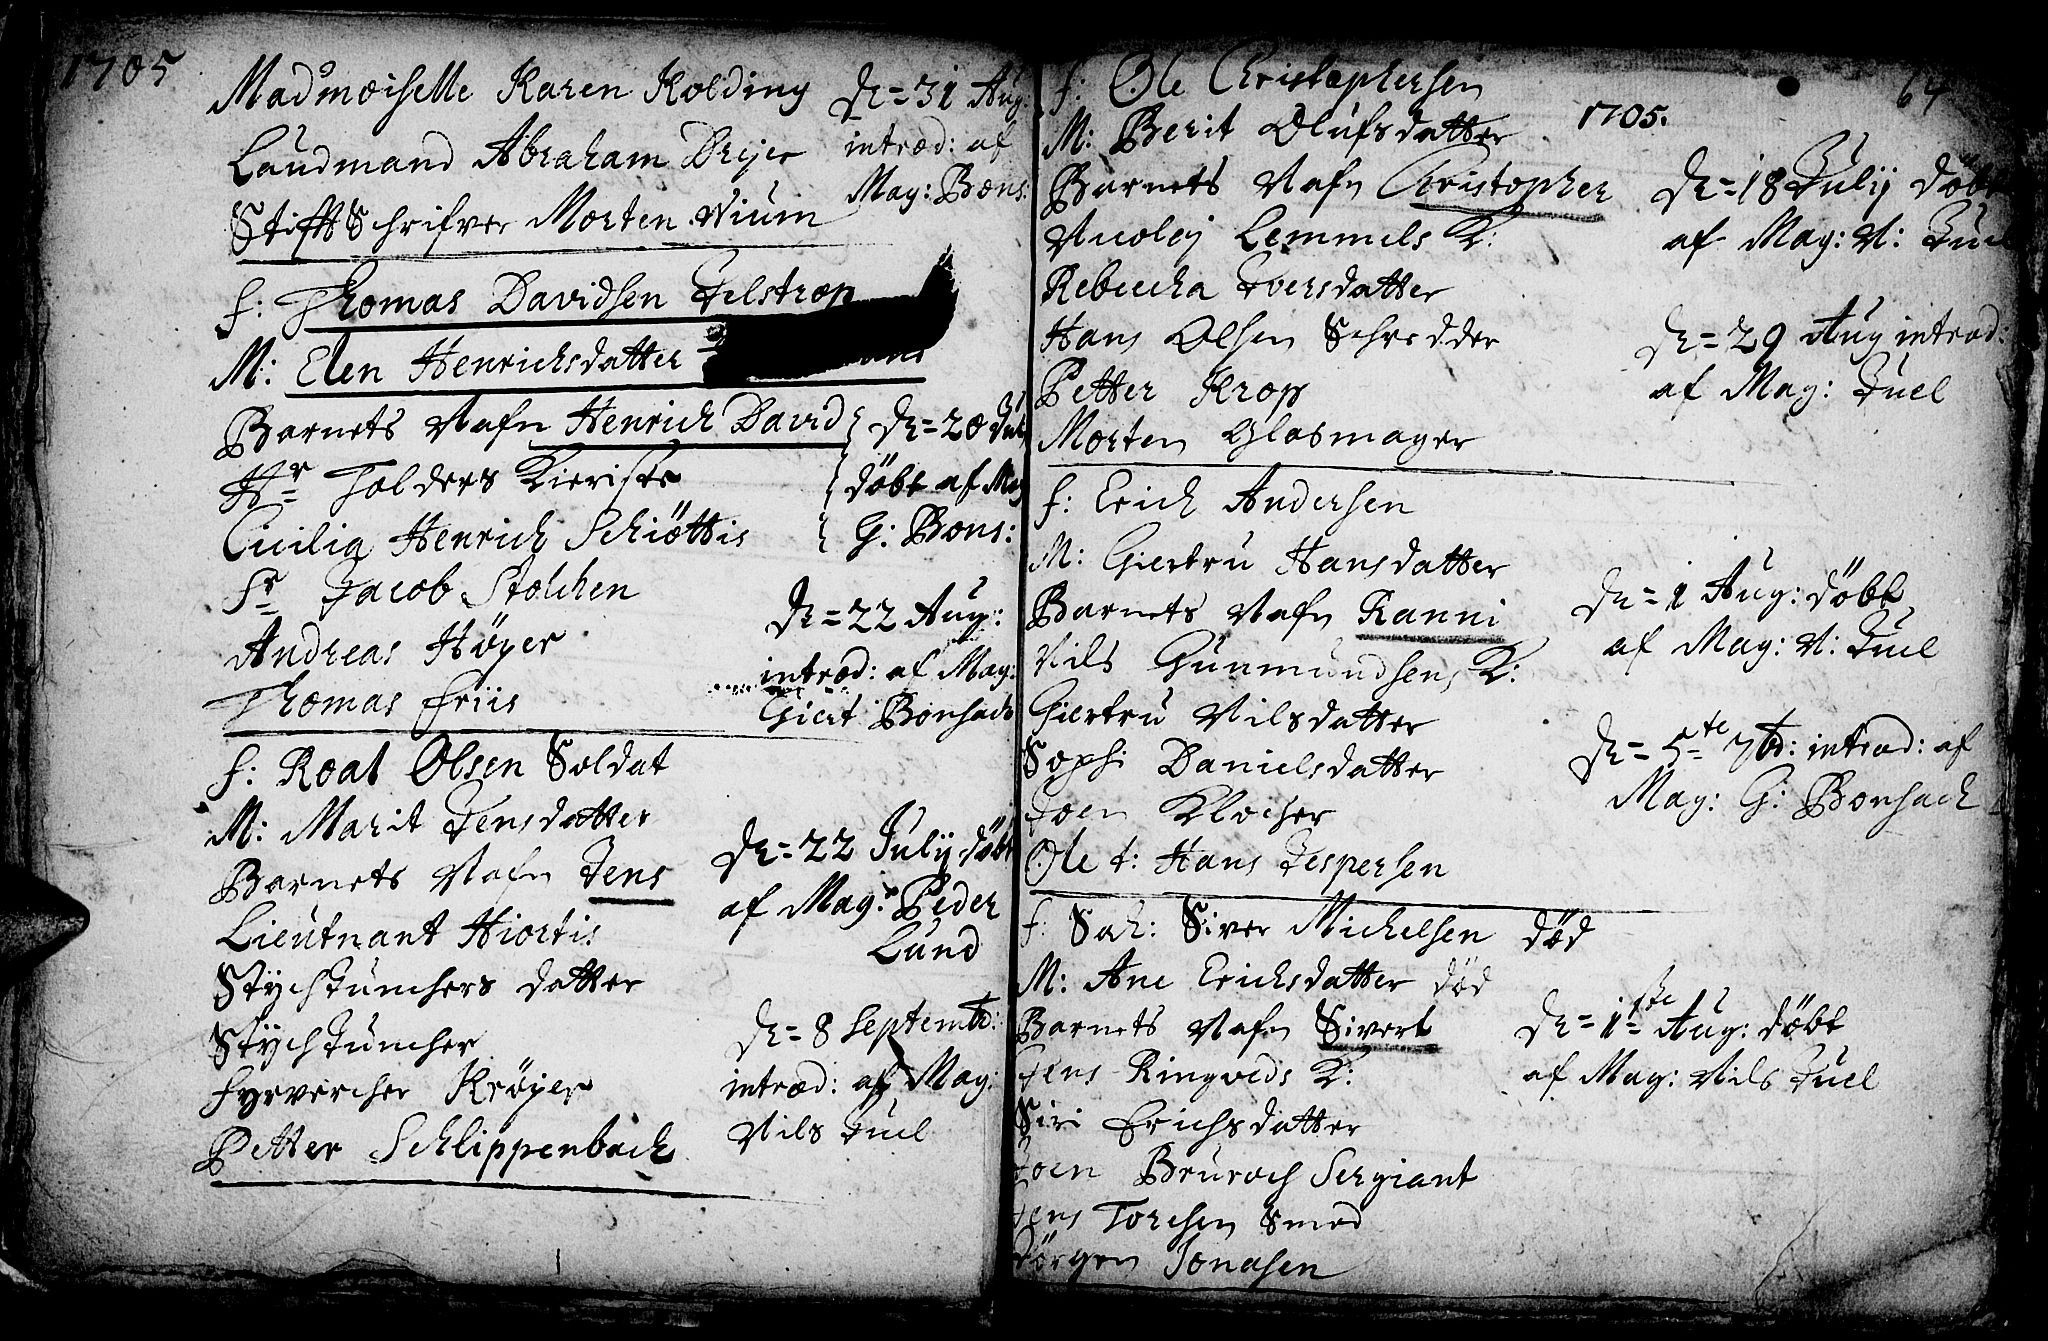 1705
Madmoiselle Karen Kolding
Laudmand Abraham Dreyer
StifftSchrifver Morten Wium
De=31 Aug:
introd: af
Mag: Bons:
f: Thomas Davidsen Jelstrop
M: Elen Henrichsdatter
Barnets Nafn Henrich David
Hr Tolders Kieriste
Cicilia Henrich Schiöttis
Sr Jacob Stolchen
Andreas Höyer
Thomas Friis
De=20 July
döbt af Mag
G: Bons:
De=22 Aug:
introd: af Mag:
Giert Bonsach
f: Roal Olsen Soldat
M: Marit Jensdatter
Barnets Nafn Jens
Lieutnant Hiortis
Styckjunchers datter
Styckjuncher
Fyrvercher Kröyer
Petter Schlippenbach
De=22 July döbt
af Mag: Peder
Lund
De=8 Septemb:
introd: af Mag:
Nils Juel
64
1705.
f: Ole Christophersen
M: Berit Olufsdatter
Barnets Nafn Christopher
Nicolej Lemmels K:
Rebeccha Iversdatter
Hans Olsen Schredder
Petter Krop
Morten Glasmager
De=18 July döbt
af Mag: N: Juel
De=29 Aug introd:
af Mag: Juel
f: Erich Andersen
M: Giertru Hansdatter
Barnets Nafn Ranni
Nils Gunmundsens K:
Giertru Nilsdatter
Sophi Danielsdatter
Joen Klocher
Ole t: Hans Jespersen
De=1 Aug: döbt
af Mag: N: Juel
De=5te 7b: introd: af
Mag: G: Bonsach
f: Sal: Siver Michelsen död
M: Ane Erichsdatter död
Barnets Nafn Sivert
Jens Ringveds K:
Siri Erichsdatter
Joen Bruroch Sergiant
Jens Toresen Smed
Jörgen Jonasen
De=1ste Aug: döbt
af Mag: Nils Juel